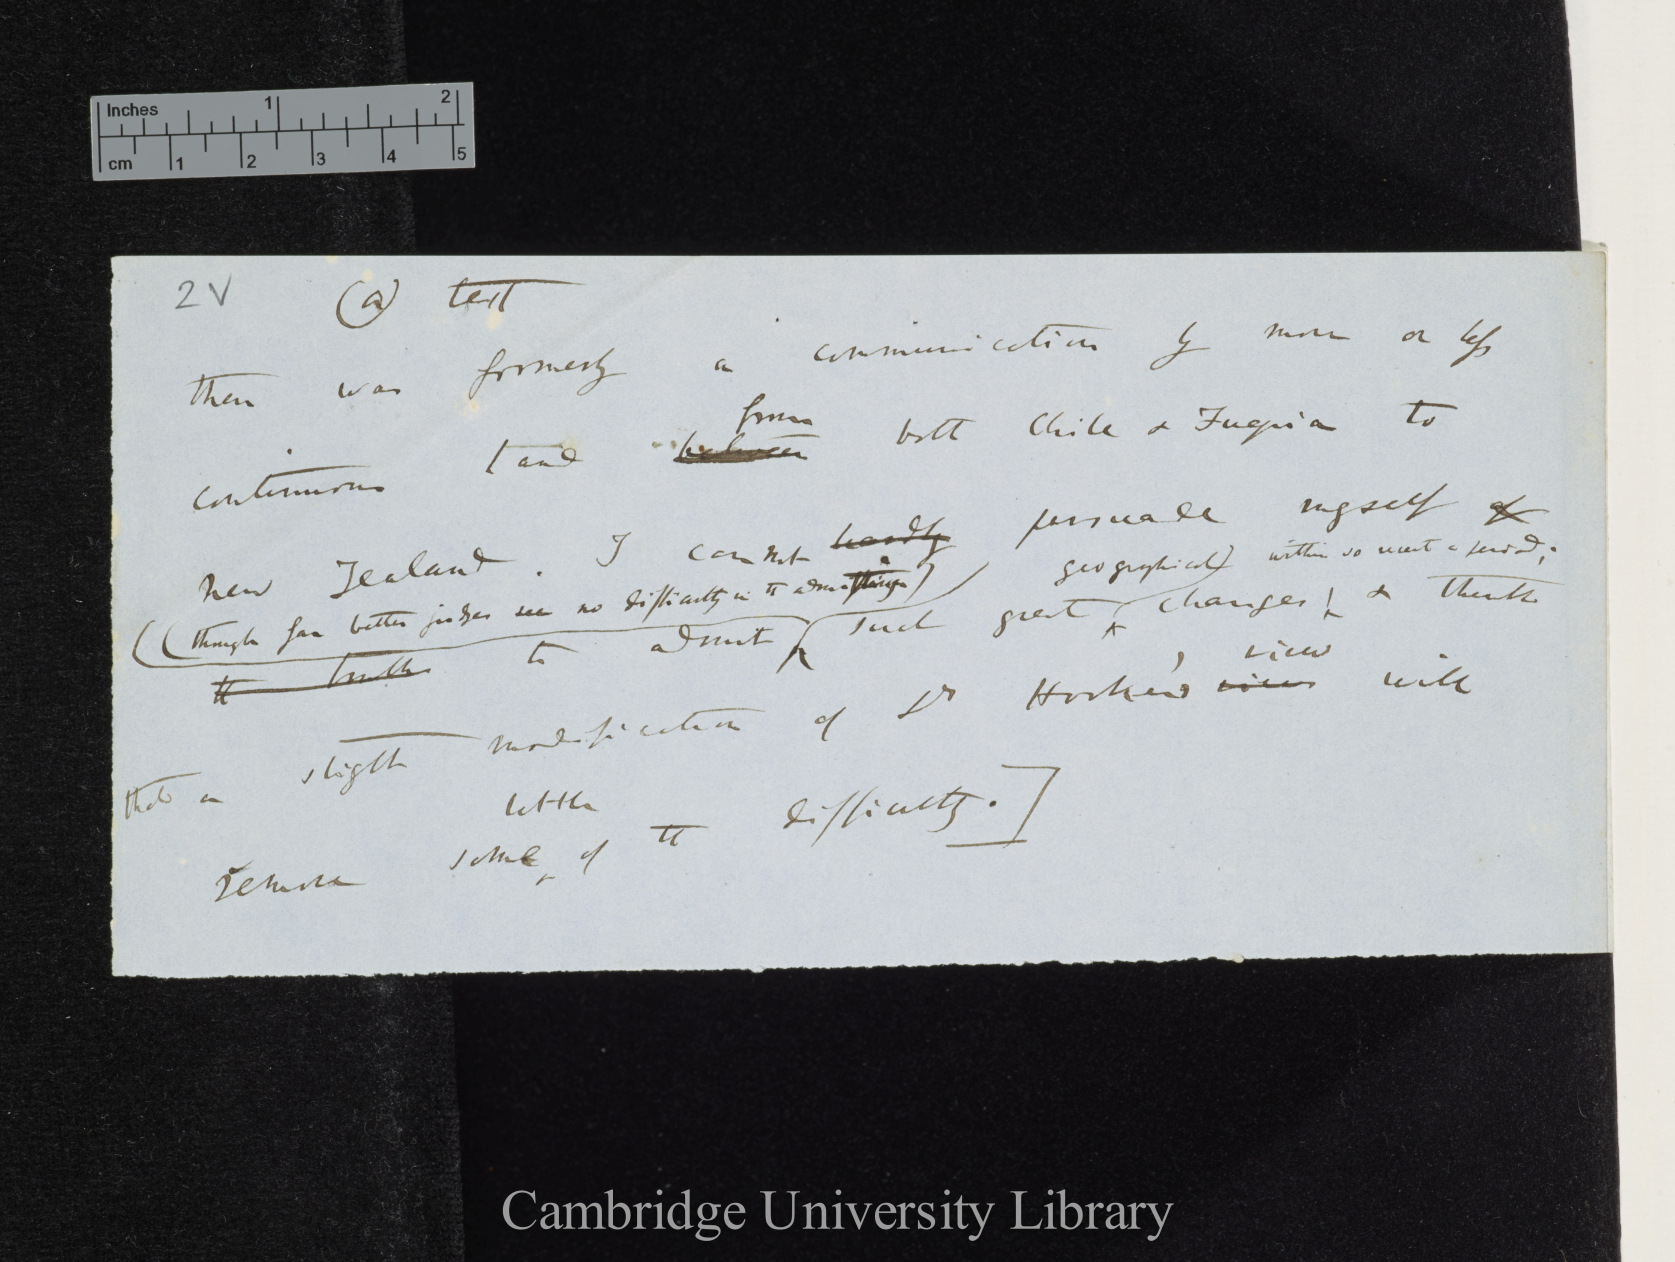 Inches 1 2
cm 1 2 3 4 5
2V (a) text
there was formerly a communication by more or less
from
continuous land between both Chile & Fuegia to
New Zealand. I cannot hardly persuade myself of
(though far better judges see no difficulty in the admitting) geographical within so recent a period;
the truth to admit such great changes, & think
view
that a slight modification of Dr Hooker's view will
little
remove some of the difficulty.]
Cambridge University Library